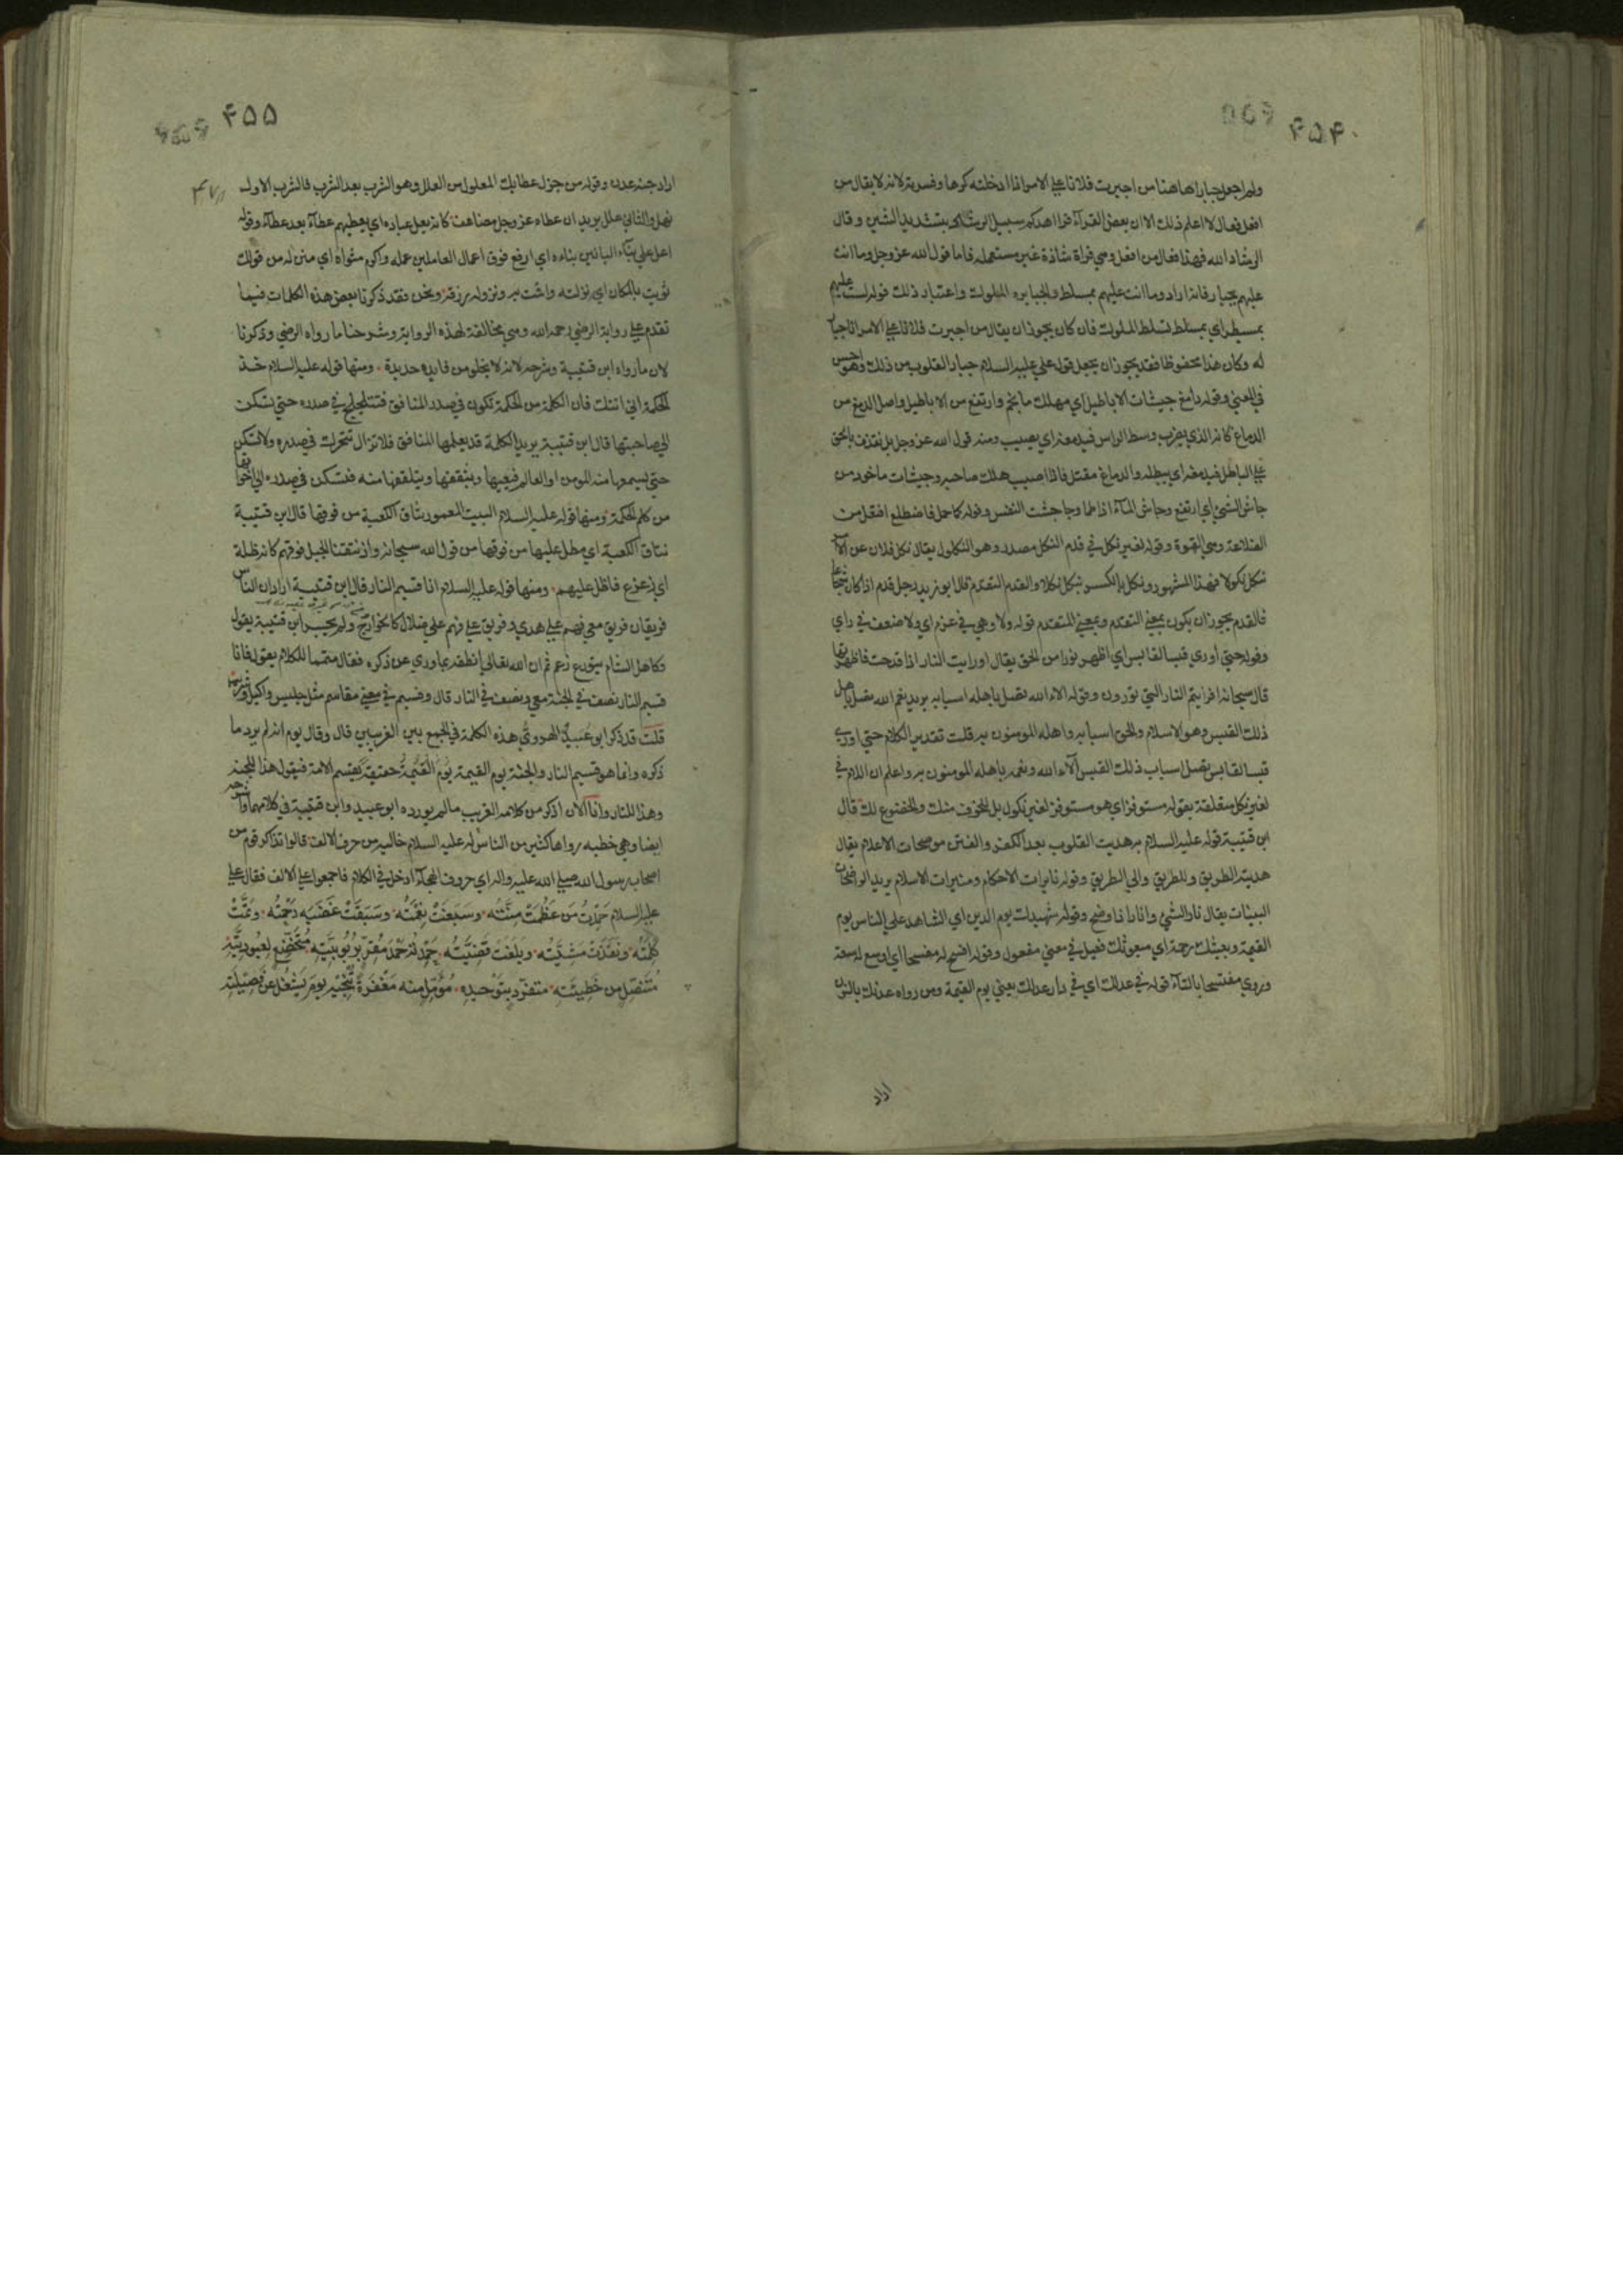 ۴۵۴
ولم اجعل جبارا هاهنا من اجبرت فلانا علي الامر اذا ادخلته كرها وقسرته لانه لا يقال من
افعل فعال لا اعلم ذلك الا ان بعض القرآء قرا اهدكم سبيل الرشاد بتشديد الشين وقال
الرشاد الله فهذا فعال من افعل وهي قراة شاذة غير مستعملة فاما قول الله عز وجل وما انت
عليهم بجبار فانه اراد وما انت عليهم بمسلط والجبابرة الملوك واعتبار ذلك قوله لست عليهم
بمسيطر اي بمسلط تسلط الملوك فان كان يجوز ان يقال من اجبرت فلانا علي الامر انا جبار
له وكان هذا محفوظا فقد يجوز ان يجعل قول علي عليه السلام جبار القلوب من ذلك وهو احسن
في المعني وقوله دامغ جيشات الاباطيل اي مهلك ما نجم وارتفع من الاباطيل واصل الدمغ من
الدماغ كانه الذي يضرب وسط الراس فيدمغه اي يصيب ومنه قول الله عز وجل بل نقذف بالحق
علي الباطل فيدمغه اي يبطله والدماغ مقتل فاذا اصيب هلك صاحبه وجيشات ماخوذ من
جاش الشئ اي ارتفع وجاش المآء اذا طما وجاشت النفس وقوله كما حمل فاضطلع افتعل من
الضلاعة وهي القوة وقوله لغير نكل في قدم النكل مصدر وهو النكول يقال نكل فلان عن الامر
ينكل نكولا فهذا المشهور ونكل بالكسر ينكل نكلا والقدم التقدم قال ابو زيد رجل قدم اذا كان شجاعا
فالقدم يجوز ان يكون بمعني التقدم وبمعني المتقدم قوله ولا وهي في عزم اي ولا ضعف في راي
وقوله حتي اوري قبسا لقابس اي اظهر نورا من الحق يقال اوريت النار اذا قدحت فاظهرتها
قال سبحانه افرايتم النار التي تورون وقوله الاء الله تصل باهله اسبابه يريد نعم الله تصل باهل
ذلك القبس وهو الاسلام والحق اسبابه واهله المومنون به قلت تقدير الكلام حتي اوري
قبسا لقابس تصل اسباب ذلك القبس آلآء الله ونعمه باهله المومنون به واعلم ان اللام في
لغير نكل متعلقة بقوله مستوفزا اي هو مستوفز لغير نكول بل للخوف منك والخضوع لك قال
ابن قتيبة قوله عليه السلام به هديت القلوب بعد الكفر والفتن موضحات الاعلام يقال
هديته الطريق وللطريق والي الطريق وقوله نايرات الاحكام ومنيرات الاسلام يريد الواضحات
البينات يقال نار الشئ وانار اذا وضح وقوله شهيدك يوم الدين اي الشاهد علي الناس يوم
القيمة وبعيثك رحمة اي مبعوثك فعيل في معني مفعول وقوله افسح له مفسحا اي اوسع له سعة
وروي مفتسحا بالتآء قوله في عدلك اي في دار عدلك يعني يوم القيمة ومن رواه عدنك بالنون
اراد
۴۵۵
اراد جنة عدن وقوله من جزل عطائك المعلول من العلل وهو الشرب بعد الشرب فالشرب الاول
نهل والثاني علل يريد ان عطاه عز وجل مضاعف كانه يعل عباده اي يعطيهم عطآء بعد عطآء وقوله
اعل علي بنآء البانين بناءه اي ارفع فوق اعمال العاملين عمله واكرم مثواه اي منزله من قولك
ثويت بالمكان اي نزلته واقمت به ونزوله رزقه ونحن فقد ذكرنا بعض هذه الكلمات فيما
تقدم علي رواية الرضي رحمه الله وهي مخالفة لهذه الرواية وشرحنا ما رواه الرضي وذكرنا
لان ما رواه ابن قتيبة وشرحه لانه لا يخلو من فايدة جديدة ومنها قوله عليه السلام خذ
الحكمة اني اتتك فان الكلمة من الحكمة تكون في صدر المنافق فتتلجلج في صدره حتي تسكن
الي صاحبتها قال ابن قتيبة يريد الكلمة قد يعلمها المنافق فلا تزال تتحرك في صدره ولا تسكن
حتي يسمعها منه المومن او العالم فيعيها ويثقفها ويتلقفها منه فتسكن في صدره الي اخواتها
من كلم الحكمة ومنها قوله عليه السلام البيت المعمور نتاق الكعبة من فوقها قال ابن قتيبة
نتاق الكعبة اي مطل عليها من فوقها من قول الله سبحانه واذ نتقنا الجبل فوقهم كانه ظلة
اي زعزع فاظل عليهم ومنها قوله عليه السلام انا قسيم النار قال ابن قتيبة اراد ان الناس
فريقان فريق معي فهم علي هدي وفريق علي فهم علي ضلال كالخوارج ولم يجسر ابن قتيبة يقول
وكاهل الشام يتورع زعم ثم ان الله تعالي انطقه بما وري عن ذكره فقال متمما للكلام بقوله فانا
قسيم النار نصف في الجنة معي ونصف في النار قال وقسيم في معني مقاسم مثل جليس واكيل وشريب
قلت قد ذكر ابو عبيد الهروي هذه الكلمة في الجمع بين الغريبين قال وقال قوم انه لم يرد ما
ذكره وانما هو قسيم النار والجنة يوم القيمة يوم القيمة حقيقة يقسم الامة فيقول هذا للجنة
وهذا للنار وانا الآن اذكر من كلامه الغريب ما لم يورده ابو عبيد وابن قتيبة في كلامهما واشرحه
ايضا وهي خطبة رواها كثير من الناس له عليه السلام خالية من حرف الالف قالوا تذاكر قوم من
اصحاب رسول الله صلي الله عليه واله اي حروف الهجآء ادخل في الكلام فاجمعوا علي الالف فقال علي
عليه السلام حَمِدْتُ مَن عَظُمَتْ مِنَّتُه وسَبَغَتْ نِعْمَتُه وسَبَقَتْ غَضَبَه رَحْمَتُه وتَمَّتْ
كَلِمَتُه ونَفَذَتْ مَشِيَّتُه وبلَغَتْ قَضِيَّتُه حَمِدْتُه حَمْدَ مُقِرٍّ برُبُوبِيَّتِه مُتَخَضِّعٍ لِعُبُودِيَّتِه
مُتَنَصِّلٍ مِن خَطِيئَتِه متفَرِّدٍ بتَوْحيدِه مُؤَمِّلٍ مِنه مَغْفِرَةً تُنْجِيه يومَ يُشْغَلُ عن فَصِيلَتِه